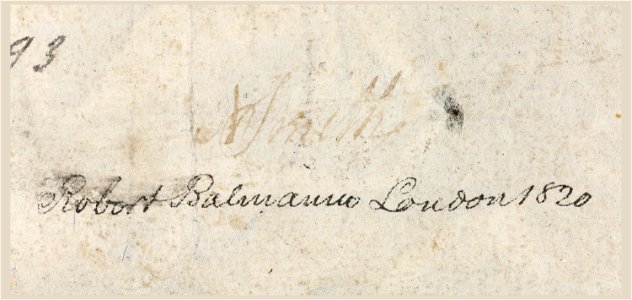 93
Smith
Robert Balmanno London 1820